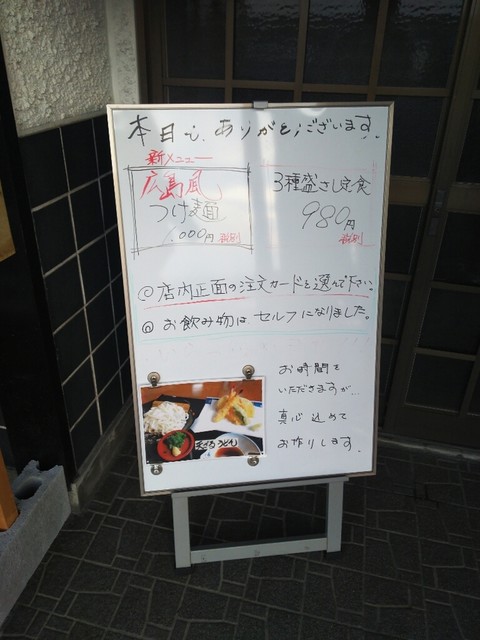 本日も、ありがとうございます.
新メニュー
広島風
つけ麺
.000円 税別
3種盛さし定食
980円
税別
◎店内正面の注文カードを選んで下さい.
◎お飲み物は セルフになりました。
お時間を
いただきますが...
真心込めて
お作りします.
天ざるうどん